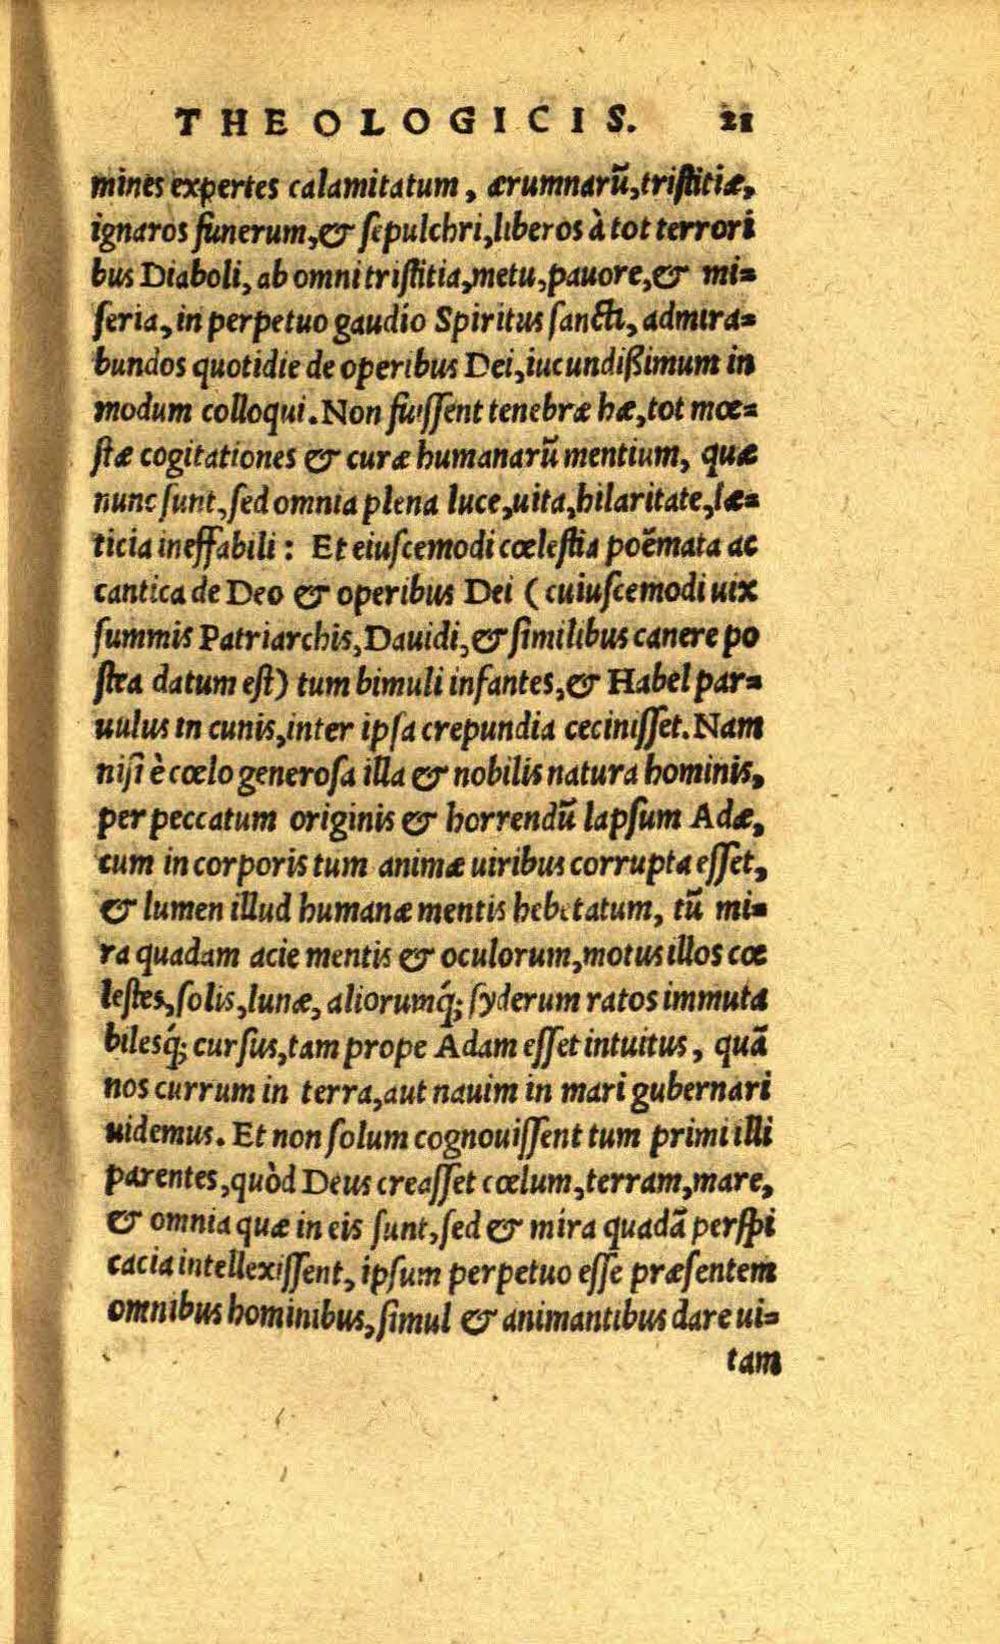 THEOLOGICIS. 21
mines expertes calamitatum, ærumnarũ, tristitiæ,
ignaros funerum, & sepulchri, liberos à tot terrori
bus Diaboli, ab omni tristitia, metu, pauore, & mi=
seria, in perpetuo gaudio Spiritus sancti, admira=
bundos quotidie de operibus Dei, iucundißimum in
modum colloqui. Non fuissent tenebræ hæ, tot mœ=
stæ cogitationes & curæ humanarũ mentium, quæ
nunc sunt, sed omnia plena luce, uita, hilaritate, læ=
ticia ineffabili: Et eiuscemodi cœlestia poëmata ac
cantica de Deo & operibus Dei (cuiuscemodi uix
summis Patriarchis, Dauidi, & similibus canere po
stea datum est) tum bimuli infantes, & Habel par=
uulus in cunis, inter ipsa crepundia cecinisset. Nam
nisi è cœlo generosa illa & nobilis natura hominis,
per peccatum originis & horrendũ lapsum Adæ,
cum in corporis tum animæ uiribus corrupta esset,
& lumen illud humanæ mentis hebetatum, tũ mi=
ra quadam acie mentis & oculorum, motus illos cœ
lestes, solis, lunæ, aliorumq́; syderum ratos immuta
bilesq́; cursus, tam prope Adam esset intuitus, quã
nos currum in terra, aut nauim in mari gubernari
uidemus. Et non solum cognouissent tum primi illi
parentes, quòd Deus creasset cœlum, terram, mare,
& omnia quæ in eis sunt, sed & mira quadã perspi
cacia intellexissent, ipsum perpetuo esse præsentem
omnibus hominibus, simul & animantibus dare ui=
tam